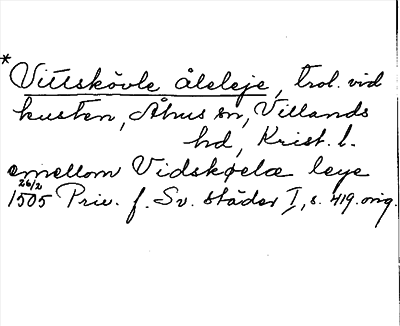 * Vittskövle åleleje, trol. vid
kusten, Åhus sn, Villands
hd, Krist. l.
emellom Vidskøelæ leye
26/2
1505 Priv. f. Sv. städer I, s. 419. orig.